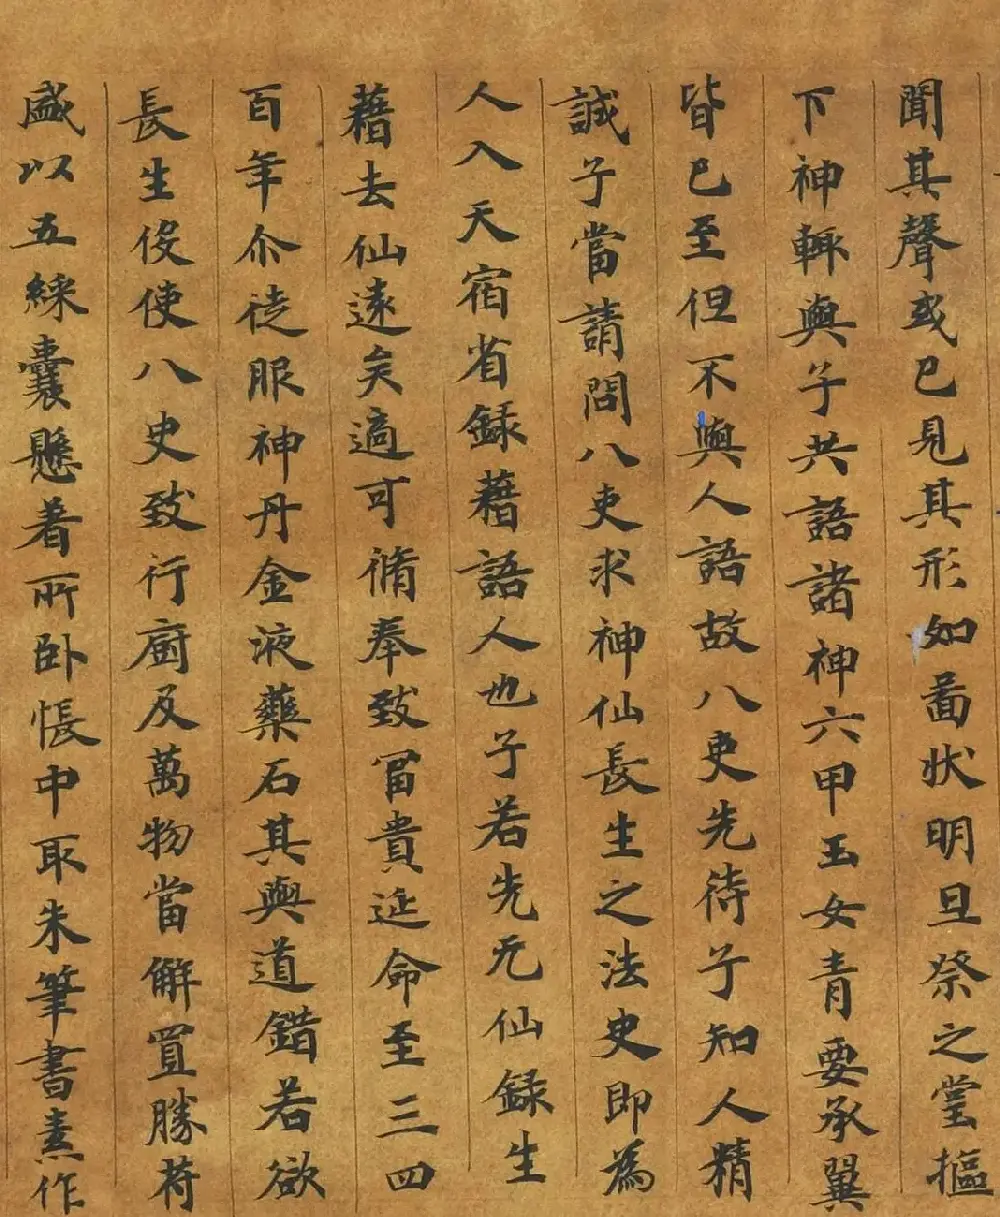 聞其聲或已見其形如圖狀明旦祭之堂摳
下神輙與子共語諸神六甲玉女青要承翼
皆已至但不與人語故八吏先待子知人精
誠子當請問八吏求神仙長生之法史即為
人入天宿省録藉語人也子若先无仙録生
藉去仙遠矣適可脩奉致冨貴延命至三四
百年尒徒服神丹金液藥石其與道錯若欲
長生伇使八史致行廚及萬物當解置勝荷
盛以五綵囊懸着所卧帳中取朱筆書素作